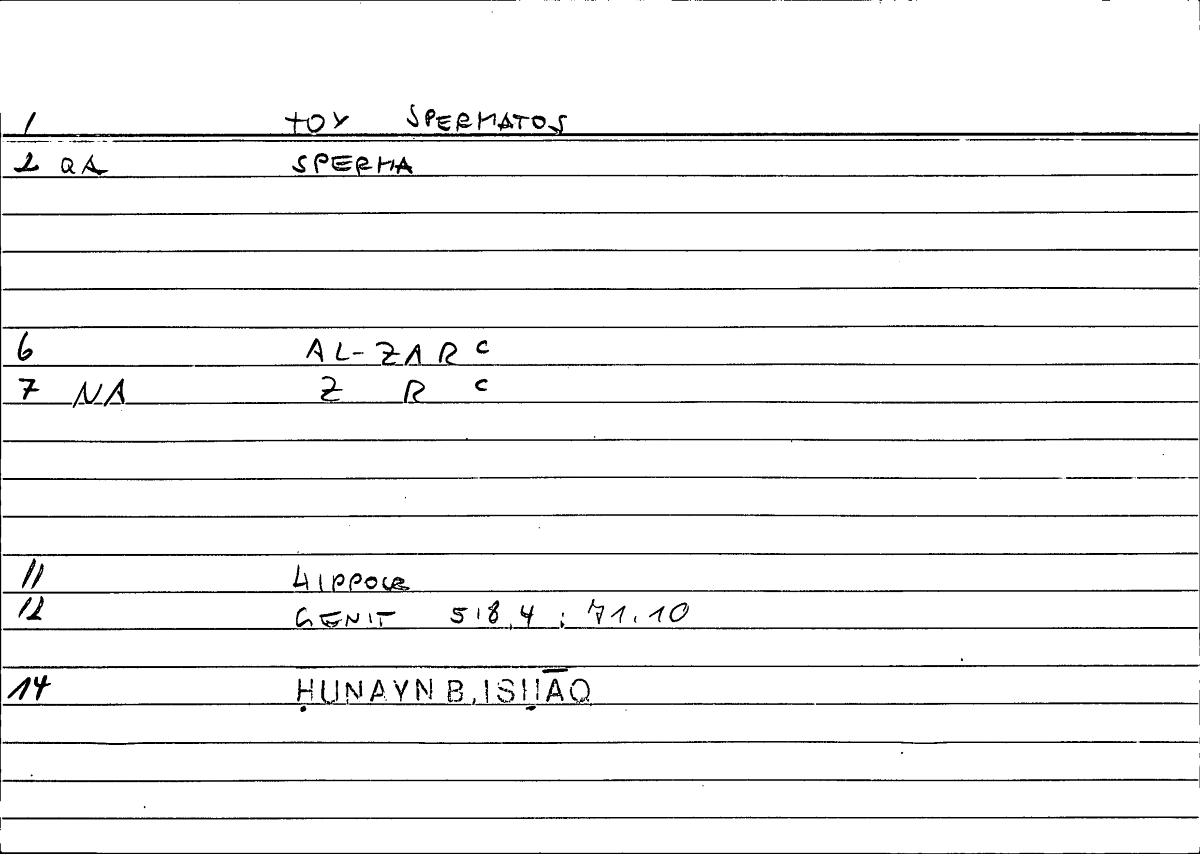 1 TOY SPERMATOS
2 QA SPERMA
6 AL-ZAR C
7 NA Z R C
11 HIPPOCR
12 GENIT 518,4 ; 71.10
14 ḤUNAYN B. ISḤĀQ